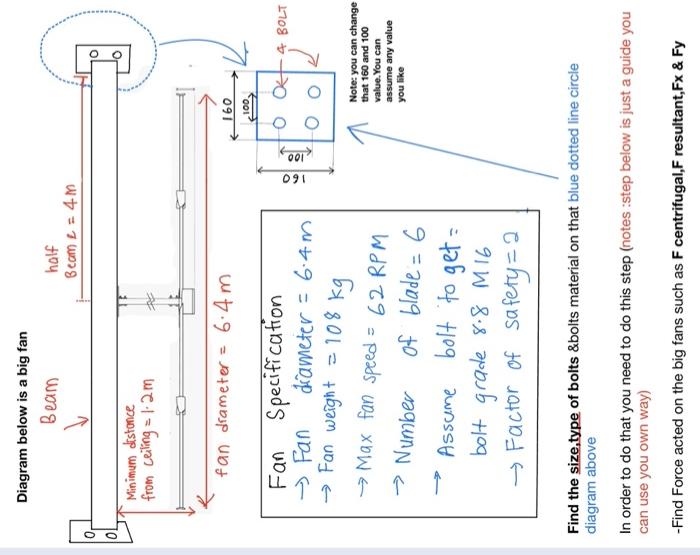 Diagram below is a big fan
Beam
half
Beam l = 4m
Minimum distance
from ceiling = 1.2m
fan diameter = 6.4m
160
100
100
160
4 BOLT
Note: you can change
that 160 and 100
value.You can
assume any value
you like
Fan Specification
→ Fan diameter = 6.4m
→ Fan weight = 108 kg
→ Max fan speed = 62 RPM
→ Number of blade = 6
→ Assume bolt to get =
bolt grade 8.8 M16
→ Factor of safety = 2
Find the size,type of bolts &bolts material on that blue dotted line circle
diagram above
In order to do that you need to do this step (notes :step below is just a guide you
can use you own way)
-Find Force acted on the big fans such as F centrifugal,F resultant,Fx & Fy